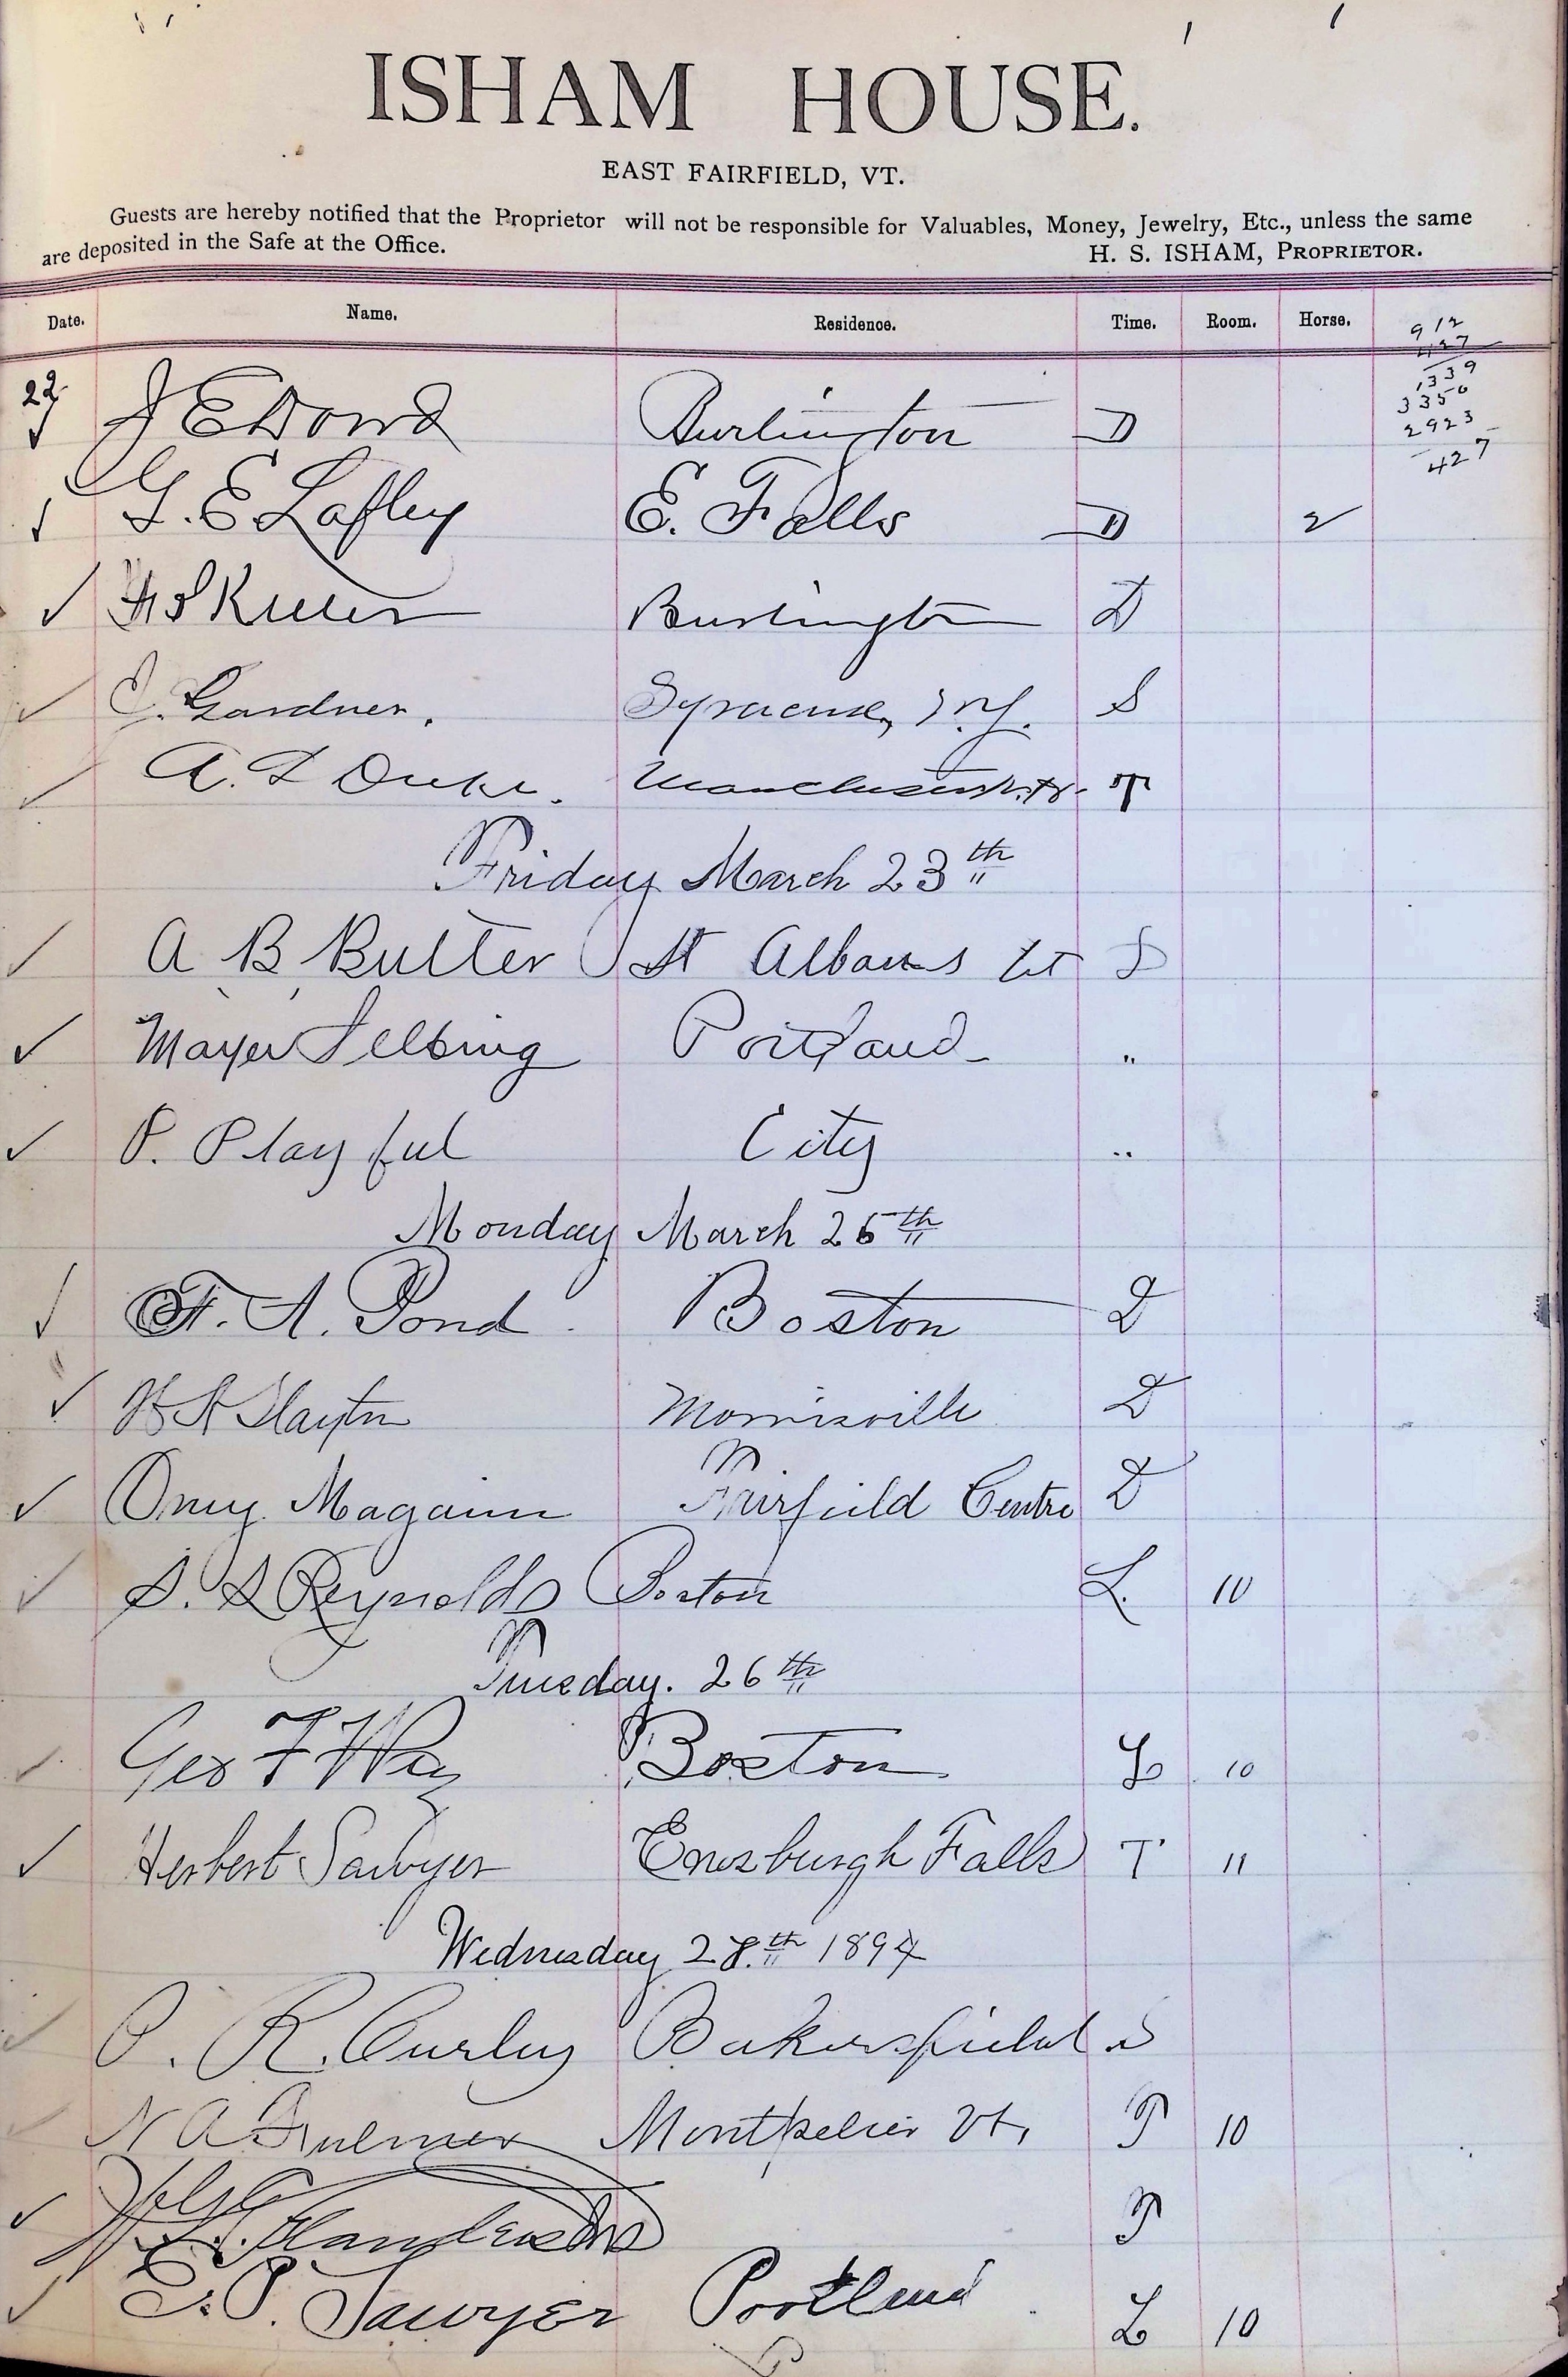 ISHAM HOUSE.
EAST FAIRFIELD, VT.
Guests are hereby notified that the Proprietor will not be responsible for Valuables, Money, Jewelry, Etc., unless the same
are deposited in the Safe at the Office.
H. S. ISHAM, PROPRIETOR.
Date. Name. Residence. Time. Room. Horse.
912
427
1339
3350
2923
427
22 J E Dowd Burlington D
G. E Lafley E. Falls D 2
Burlington D
Gardner. Syracuse, N.Y. S
A. T
Friday March 23th
A B Butter St Albans Vt S
Mayer Portland "
P. Playful City "
Monday March 26th
F. A. Pond Boston D
H A Slayton Morrisville D
Magainn Fairfield Centre D
S. L Reynolds Boston L. 10
Tuesday. 26th
Geo F Way Boston L 10
Herbert Sawyer Enosburgh Falls T 11
Wednesday 28.th 1894
P. R. Curley Bakersfield S
N A Montpelier Vt, T 10
T
E. P. Sawyer Portland L 10